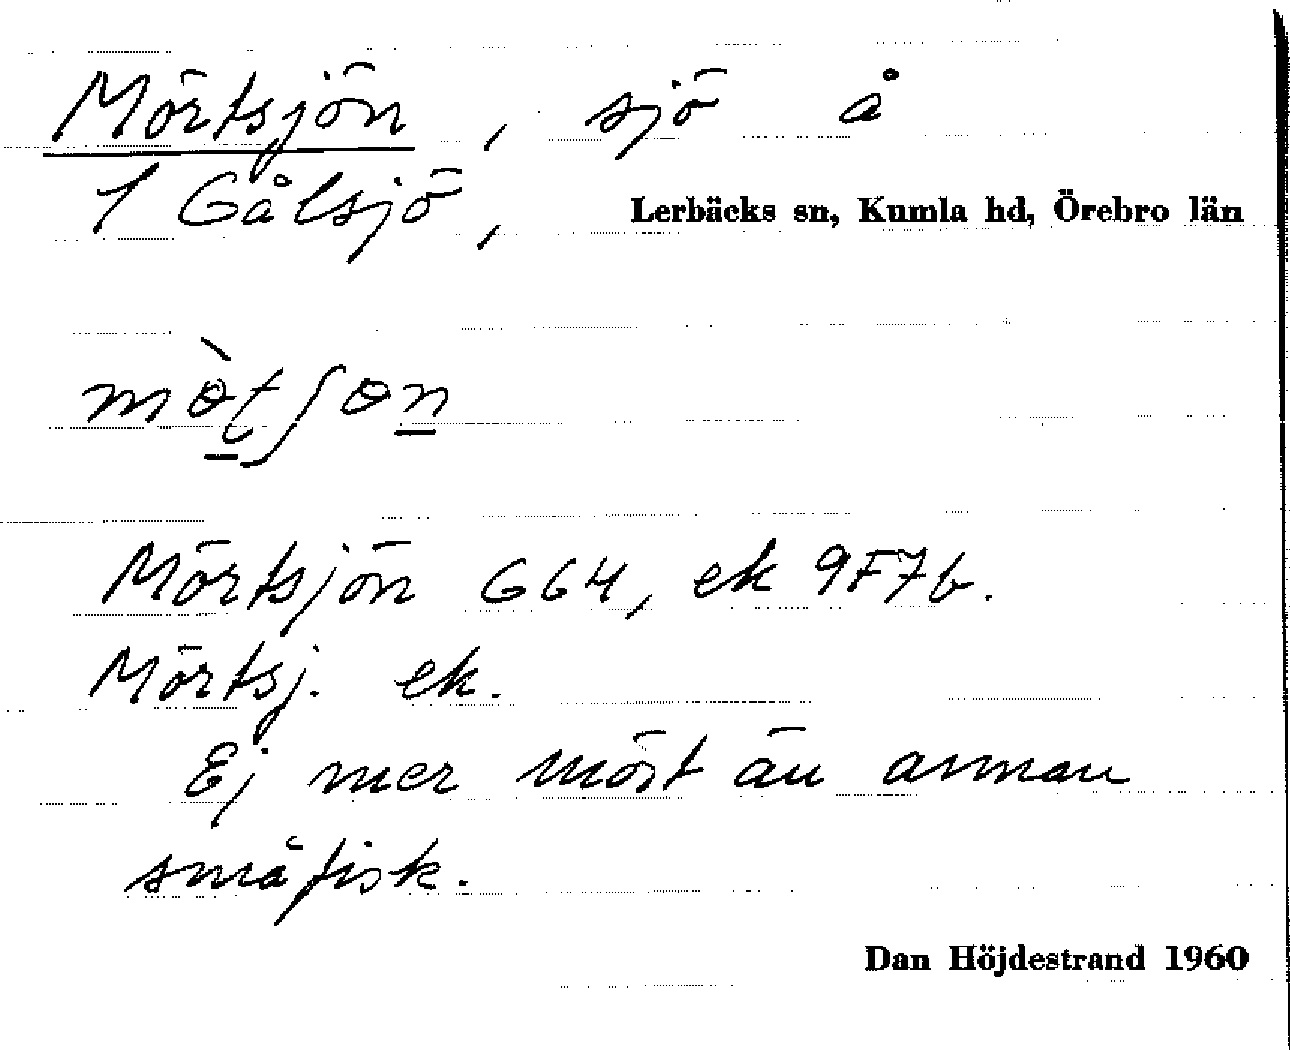 Mörtsjön, sjö å
1 Gålsjö, Lerbäcks sn, Kumla hd, Örebro län
mɵ̀tʃɵn
Mörtsjön G64, ek 9F7b.
Mörtsj. ek.
Ej mer mört än annan
småfisk.
Dan Höjdestrand 1960